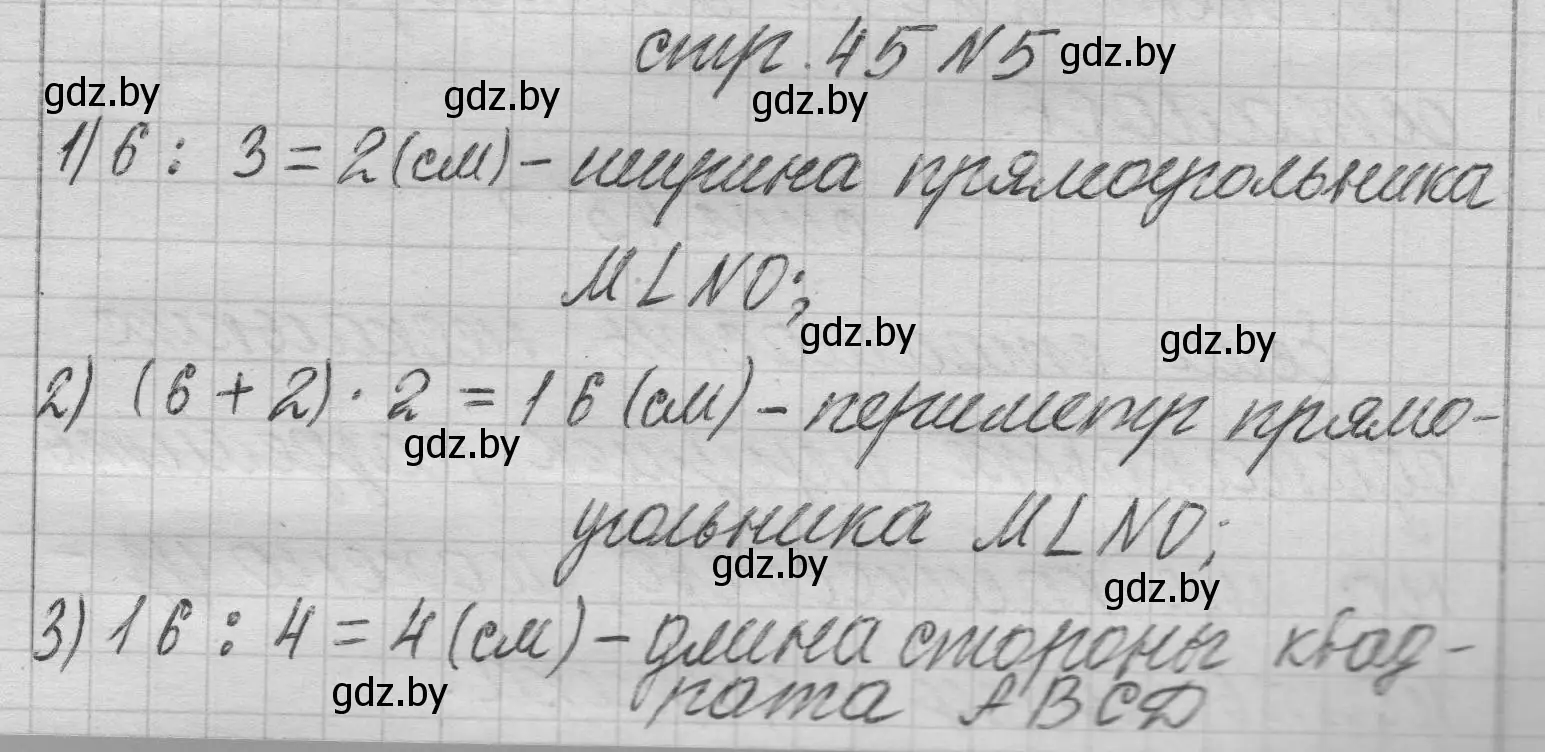 стр. 45 N5 gdz.by
gdz.by gdz.by gdz.by
1) 6 : 3 = 2 (см) - ширина прямоугольника
MLNO;
gdz.by gdz.by
2) (6 + 2) · 2 = 16 (см) - периметр прямо-
gdz.by
угольника MLNO;
gdz.by gdz.by
3) 16 : 4 = 4 (см) - длина стороны квад-
gdz.by рата ABCD